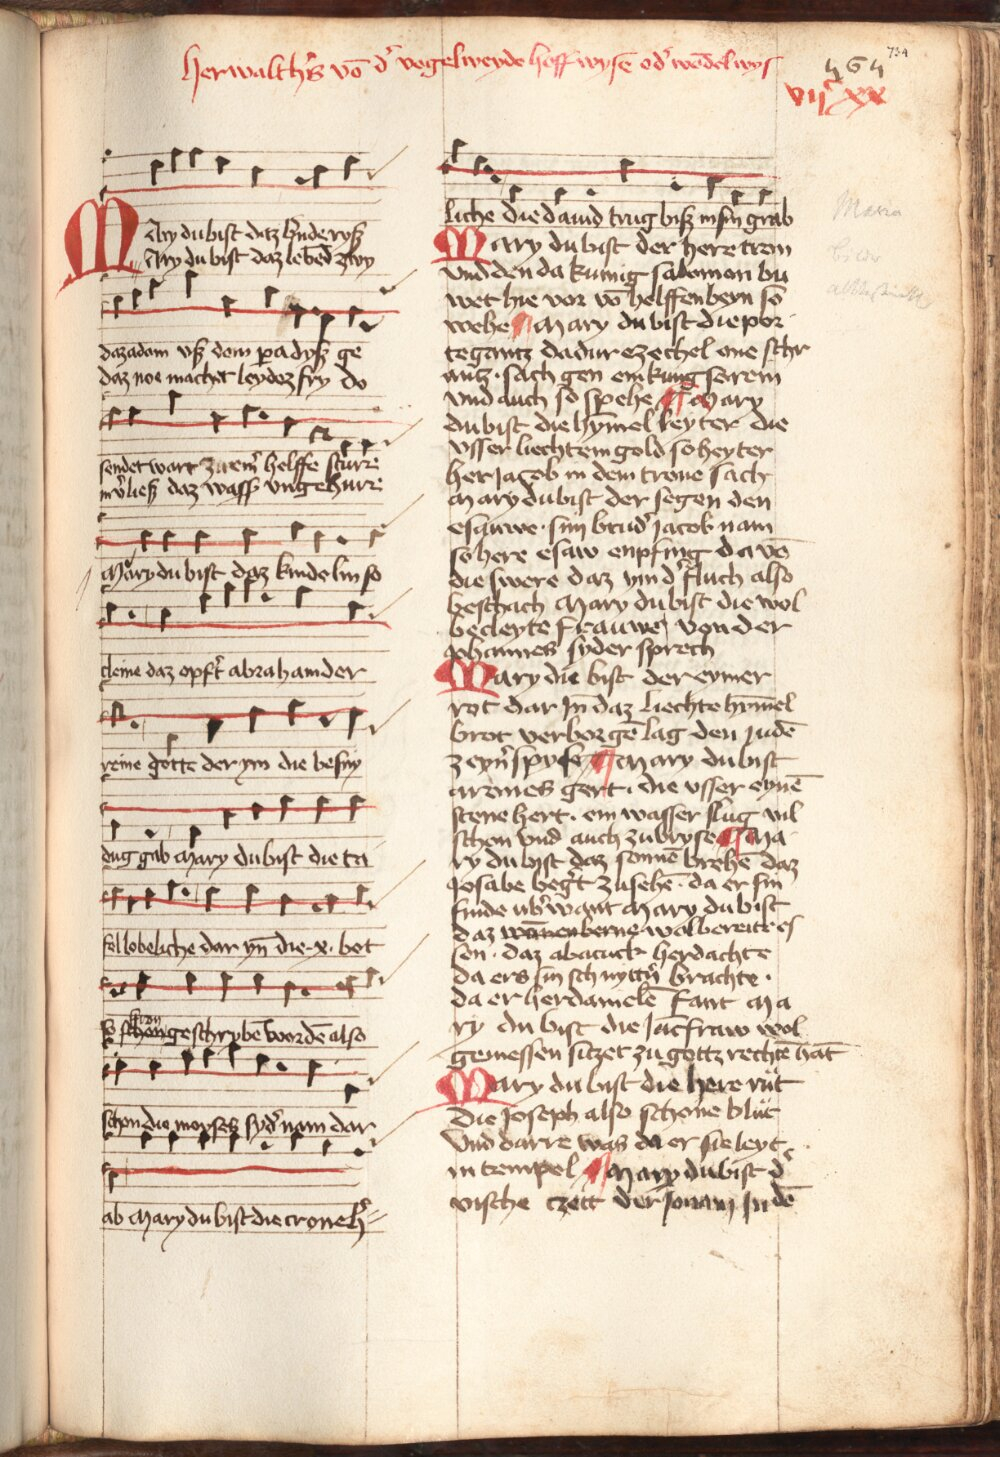 Her walthers võ dʾ vogelweyde hoff wysẽ odʾ wẽdelwys
734
464
vijᶜ xx
Mary du bist daz bʾnde ryß
Mary du bist daz lebẽd zwy
daz adam vß dem padyß ge
daz noe machet leydez fry do
sendet wart zu emʾ helffe sturre
in vʾließ daz wasß vngehurre
Mary du bist daz kindelin so
cleine daz opftʾ abraham der
reine gotte der ym die besny
dug gab Mary du bist die ta
fel lobeliche dar yn die .x. bot
geschrybẽ wordẽ also
schon die moyses sydʾ nam dar
ab Mary du bist die crone hʾ
liche die dauid trug biß in sin grab
Mary du bist der here tron
vnd den da kunig salomon bu
wet hie vor võ helffenbern so
wehe ¶ Mary du bist die por
te gantz da durch ezechel one schr
antz . sach gen ein kung so rem
vnd auch so spehe ¶ Mary
du bist die hymel leyter die
vsser liechtem gold so heyter
her Jacob in dem trone sach
Mary du bist der segen den
esauwe . sim brudʾ Jacob nam
so here esaw enpfing da võ
die swere daz ym dʾ fluch also
beschach Mary du bist die wol
becleyte frauwe von der
Johannes syder sprech
Mary die bist der eymer
rot dar Jn daz liechte hymel
brot verborgẽ lag den judẽ
zeynʾ spyse ¶ Mary du bist
arones gert . die vsser eynẽ
stene hert . ein wasser slug vil
schon vnd auch zu bryse ¶ Ma
ry du bist daz sonnẽ brehẽ daz
Josabe begʾt zu sehẽ . da er sin
finde ubʾwant Mary du bist
daz wol bereittes
sen . daz abacuck herdachte
da ers sin schnyttʾn brachte .
da er herdamelẽ fant Ma
ry du bist die Jũcfraw wol
gemessen sitzet zu gottz rechtẽ hãt
Mary du bist die here rut
die Joseph also schone blut
vnd darre was da er sie leyt
in tempel ¶ Mary du bist dʾ
vische czett der Jonam Jn dẽ
Maria